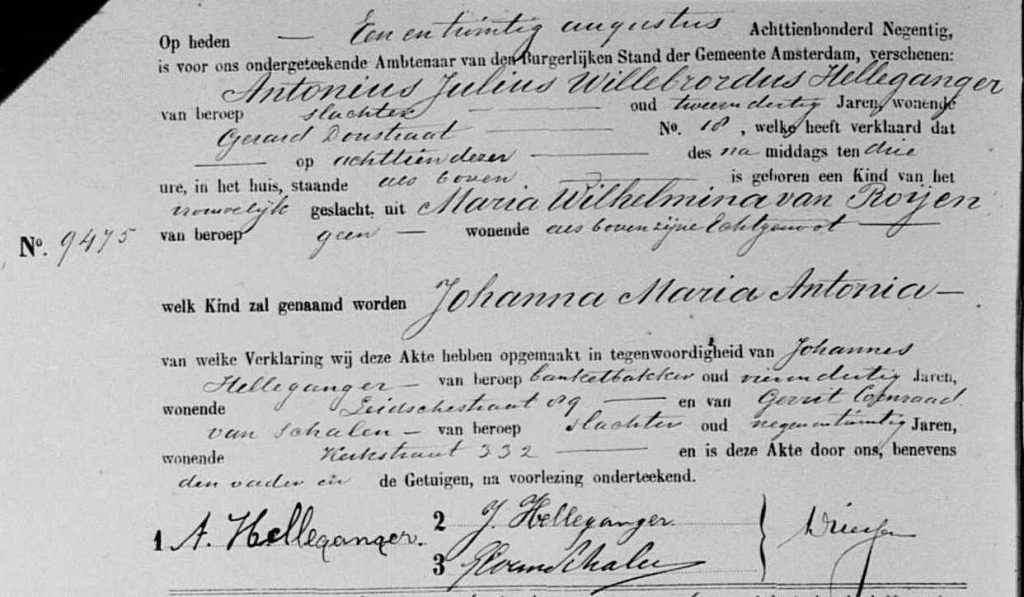 Op heden — Een en twintig augustus Achttienhonderd Negentig,
is voor ons ondergeteekende Ambtenaar van den Burgerlijken Stand der Gemeente Amsterdam, verschenen:
Antonius Julius Willebrordus Helleganger
van beroep slachter — oud twee en dertig Jaren, wonende
Gerard Doustraat — No. 18, welke heeft verklaard dat
— op achttien dezer — des na middags ten drie
ure, in het huis, staande als boven — is geboren een Kind van het
vrouwelijk geslacht, uit Maria Wilhelmina van Roijen
van beroep geen — wonende als boven zijne Echtgenoot —
No. 9475
welk Kind zal genaamd worden Johanna Maria Antonia —
van welke Verklaring wij deze Akte hebben opgemaakt in tegenwoordigheid van Johannes
Helleganger — van beroep banketbakker oud vier en dertig Jaren,
wonende Leidschestraat 89 — en van Gerrit Coenraad
van Schalen — van beroep slachter oud negen en twintig Jaren,
wonende Kerkstraat 332 — en is deze Akte door ons, benevens
den vader en de Getuigen, na voorlezing onderteekend.
1 A. Helleganger.
2 J. Helleganger.
3 GC van Schalen